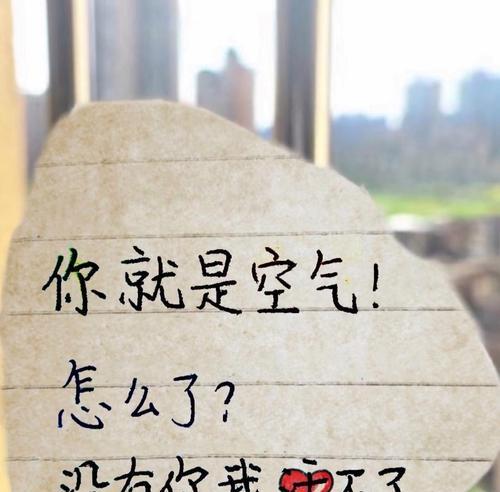 你就是空气!
怎么了?
没有你我不了